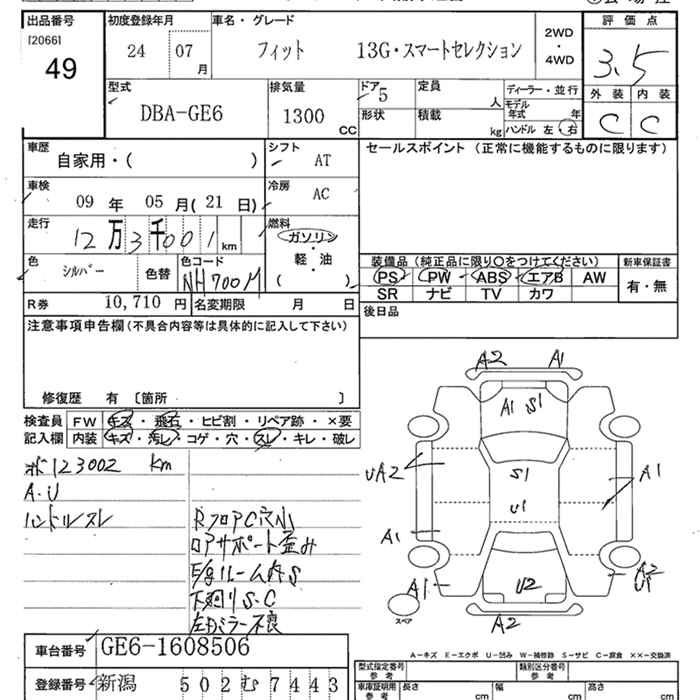 出品番号
[2066]
49
初度登録年月
24 07
月
車名・グレード
フィット 13G・スマートセレクション
2WD
・
4WD
評価点
3.5
型式
DBA-GE6
排気量
1300 CC
ドア 5
形状
定員
人
積載
kg
ディーラー・並行
モデル
年式 年
ハンドル 左・右
外装 内装
C C
車歴
自家用・( )
シフト
AT
セールスポイント (正常に機能するものに限ります)
車検
09 年 05 月( 21 日)
冷房
AC
走行
12 万 3 千 001 km
燃料
ガソリン
・
軽・油
( )
色
シルバー
色替
色コード
NH700M
装備品 (純正品に限り〇をつけてください)
PS PW ABS エアB AW
SR ナビ TV カワ
新車保証書
有・無
R券 10,710 円
名変期限 月 日
後日品
注意事項申告欄 (不具合内容等は具体的に記入して下さい)
修復歴 有 〔箇所 〕
検査員
記入欄
FW キズ・飛石・ヒビ割・リペア跡・×要
内装 キズ・汚レ・コゲ・穴・スレ・キレ・破レ
123002 km
A・U
ハンドルスレ
RフロアC穴小
ロアサポート歪み
下廻りS・C
左ドアミラー不良
A2 A1
A1 S1
UA2
S1
U1
A1
A1
A1
U2
A2
U1
A2
スペア
車台番号
GE6-1608506
登録番号
新潟 502 む 7443
A-キズ E-エクボ U-凹み W-補修跡 S-サビ C-腐食 XX-交換済
型式指定番号
参考
類別区分番号
参考
車庫証明用
参考
長さ cm
幅 cm
高さ cm